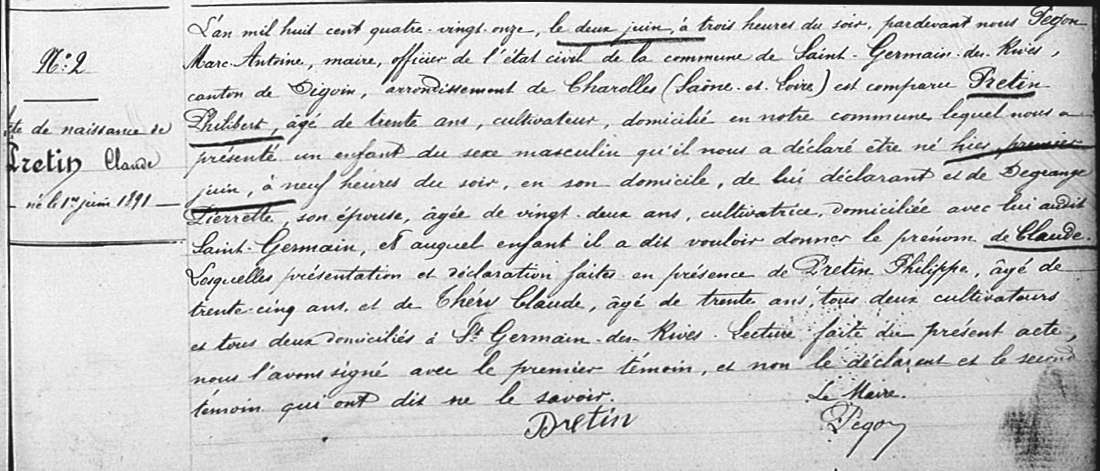 N.º 2
te de naissance de
Pretin Claude
né le 1er juin 1891
L'an mil huit cent quatre-vingt-onze, le deux juin, à trois heures du soir, pardevant nous Pegon
Marc-Antoine, maire, officier de l'état civil de la commune de Saint-Germain-des-Rives,
canton de Digoin, arrondissement de Charolles (Saône-et-Loire) est comparu Pretin
Philibert, âgé de trente ans, cultivateur, domicilié en notre commune, lequel nous a
présenté un enfant du sexe masculin qu'il nous a déclaré être né hier, premier
juin, à neuf heures du soir, en son domicile, de lui déclarant et de Degrange
Pierrette, son épouse, âgée de vingt-deux ans, cultivatrice, domiciliée avec lui audit
Saint-Germain, et auquel enfant il a dit vouloir donner le prénom de Claude.
Lesquelles présentation et déclaration faites en présence de Pretin Philippe, âgé de
trente-cinq ans, et de Théry Claude, âgé de trente ans, tous deux cultivateurs
et tous deux domiciliés à St Germain-des-Rives. Lecture faite du présent acte,
nous l'avons signé avec le premier témoin, et non le déclarant et le second
témoin qui ont dit ne le savoir.
Le Maire.
Pretin
Pegon